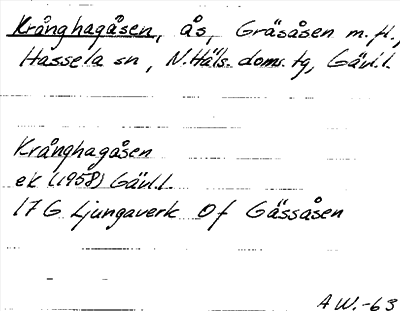 Krånghagåsen, ås, Gräsåsen m.fl.,
Hassela sn, N.Häls. doms. tg, Gävl.l.
Krånghagåsen
ek (1958) Gävl.l.
17 G Ljungaverk Of Gässåsen
A W.-63